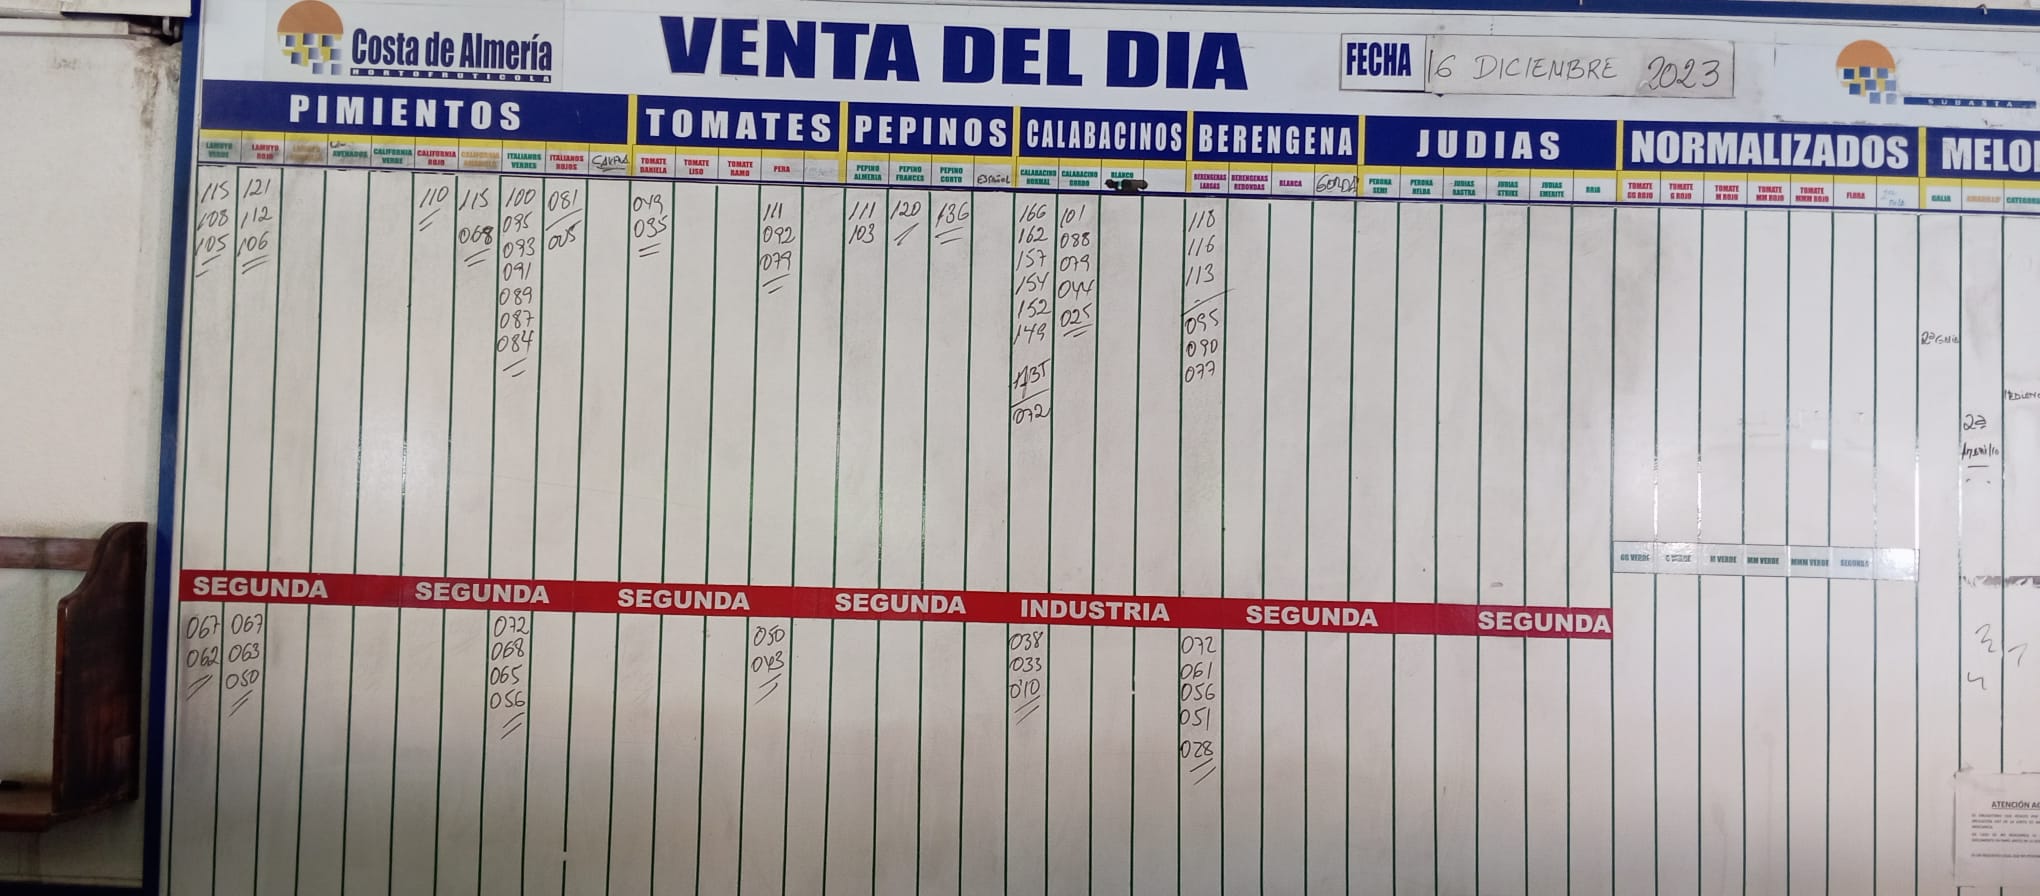 Costa de Almería
HORTOFRUTICOLA
VENTA DEL DIA
FECHA 16 DICIEMBRE 2023
SUBASTA
PIMIENTOS TOMATES PEPINOS CALABACINOS BERENGENA JUDIAS NORMALIZADOS MELO
LAMUYO VERDE
LAMUYO ROJO
ASURCADOS
CALIFORNIA VERDE
CALIFORNIA ROJO
CALIFORNIA AMARILLO
ITALIANOS VERDES
ITALIANOS ROJOS
TOMATE DANIELA
TOMATE LISO
TOMATE RAMO
PERA
PEPINO ALMERIA
PEPINO FRANCES
PEPINO CORTO
ESPAÑOL
CALABACINO NORMAL
CALABACINO GORDO
BLANCO
BERENGENAS LARGAS
BERENGENAS REDONDAS
BLANCA
GORDA
PERONA SEMI
PERONA HELDA
JUDIAS RASTRA
JUDIAS STRIKE
JUDIAS EMERITE
ROJA
TOMATE GG ROJO
TOMATE G ROJO
TOMATE M ROJO
TOMATE MM ROJO
TOMATE MMM ROJO
FLORA
GALIA
AMARILLO
CATEGOR
115 121 110 115 100 081 049 111 111 120 136 166 101 118
108 112 068 095 035 092 103 162 088 116
105 106 093 079 157 079 113
091 154 044
089 152 025 095
087 149 090
084 135 077
072
2ª GALIA
2ª
Amarillo
GG VERDE G VERDE M VERDE MM VERDE MMM VERDE SEGUNDA
SEGUNDA SEGUNDA SEGUNDA SEGUNDA INDUSTRIA SEGUNDA SEGUNDA
067 067 072 050 038 072
062 063 068 043 033 061
050 065 010 056
056 051
028
ATENCIÓN AG